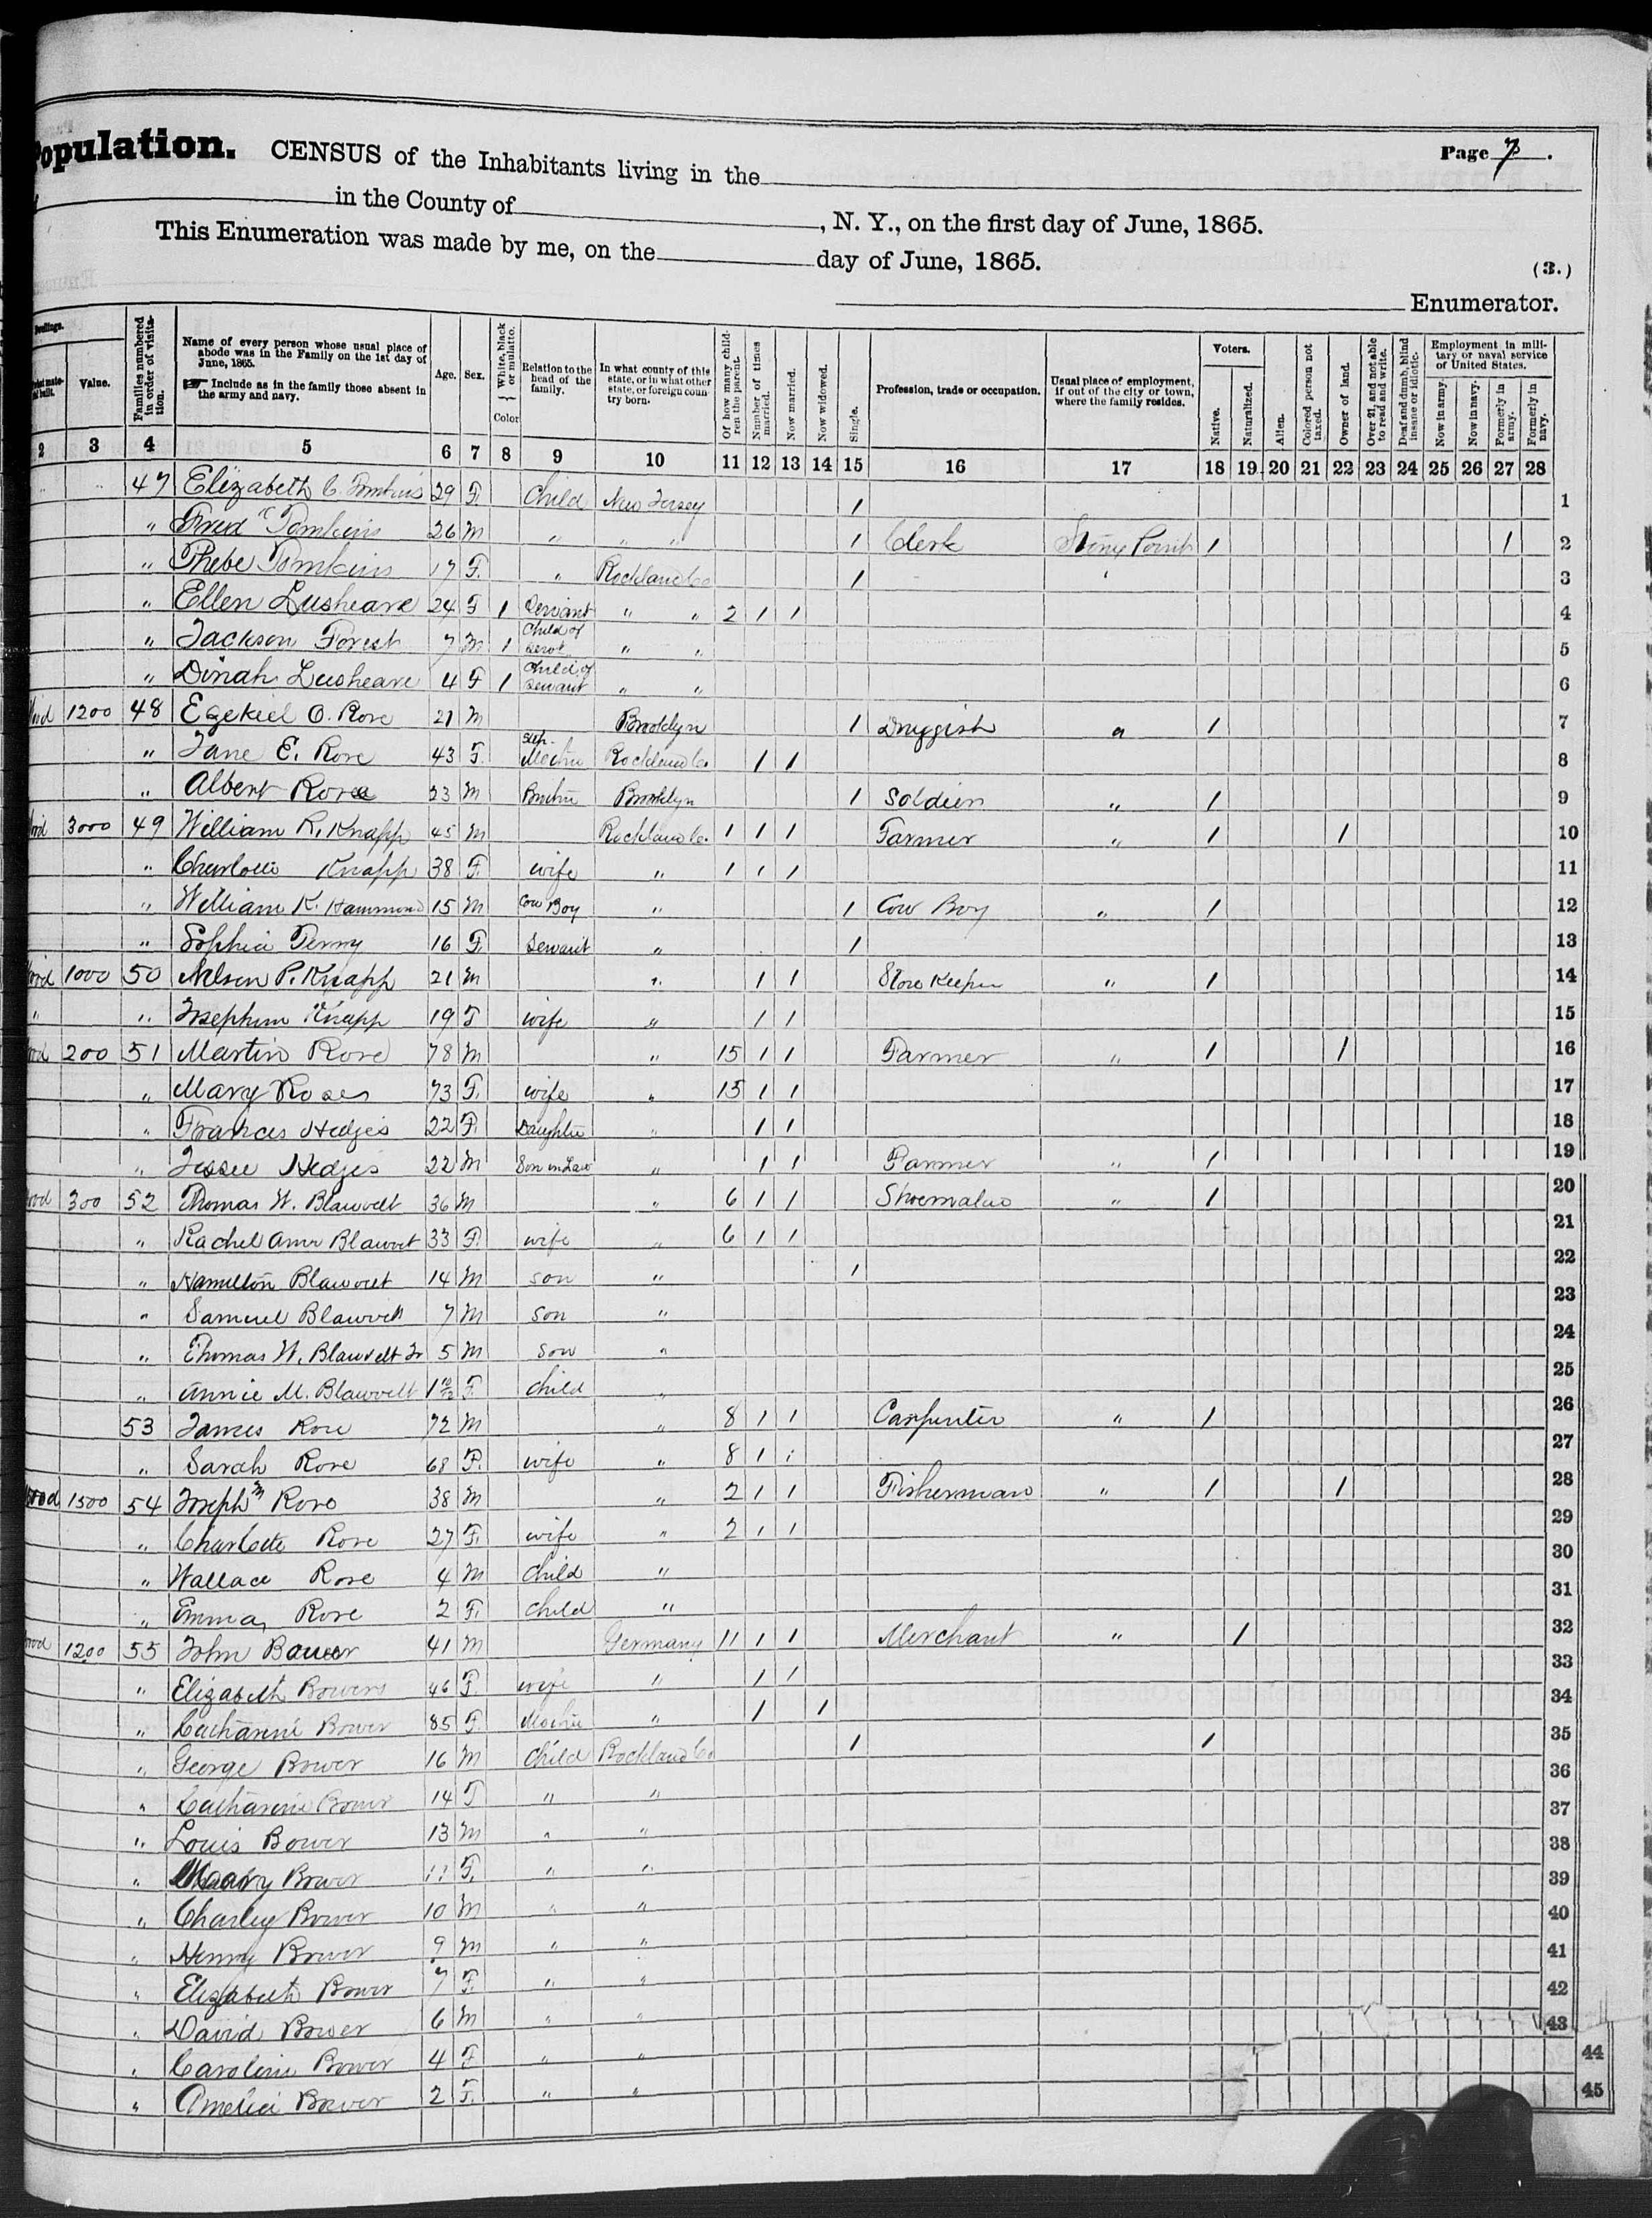 Population. CENSUS of the Inhabitants living in the Page 7.
in the County of , N. Y., on the first day of June, 1865.
This Enumeration was made by me, on the day of June, 1865.
(3.)
Enumerator.
Value. Families numbered in order of visitation. Name of every person whose usual place of abode was in the Family on the 1st day of June, 1865. Include as in the family those absent in the army and navy. Age. Sex. White, black or mulatto. Color Relation to the head of the family. In what county of this state, or in what other state, or foreign country born. Of how many children the parent. Number of times married. Now married. Now widowed. Single. Profession, trade or occupation. Usual place of employment, if out of the city or town, where the family resides. Voters. Native. Naturalized. Alien. Colored person not taxed. Owner of land. Over 21, and not able to read and write. Deaf and dumb, blind insane or idiotic. Employment in military or naval service of United States. Now in army. Now in navy. Formerly in army. Formerly in navy.
2 3 4 5 6 7 8 9 10 11 12 13 14 15 16 17 18 19 20 21 22 23 24 25 26 27 28
" " 47 Elizabeth C. Tomkins 29 F. Child New Jersey 1 1
" Fred C Tomkins 26 M " " " 1 Clerk Stony Point 1 1 2
" Phebe Tomkins 17 F. " Rockland Co 1 3
" Ellen Lusheare 24 F 1 Servant " " 2 1 1 4
" Jackson Forest 7 M 1 Child of servt " " 5
" Dinah Lusheare 4 F 1 Child of servant " " 6
1200 48 Ezekiel O. Rose 21 M Brooklyn 1 Druggist " 1 7
" Jane E. Rose 43 F. Step-Mother Rockland Co. 1 1 8
" Albert Rose 23 M Brother Brooklyn 1 Soldier " 1 9
3000 49 William R. Knapp 45 M Rockland Co. 1 1 1 Farmer " 1 1 10
" Charlotte Knapp 38 F. wife " 1 1 1 11
" William K. Hammond 15 M Cow Boy " 1 Cow Boy " 1 12
" Sophia Terny 16 F. Servant " 1 13
1000 50 Nelson P. Knapp 21 M " 1 1 Store Keeper " 1 14
" " Josephine Knapp 19 F wife " 1 1 15
200 51 Martin Rose 78 M " 15 1 1 Farmer " 1 1 16
" Mary Roses 73 F. wife " 15 1 1 17
" Frances Hedges 22 F. Daughter " 1 1 18
" Jesse Hedges 22 M Son in Law " 1 1 Farmer " 1 19
300 52 Thomas W. Blauvelt 36 M " 6 1 1 Shoemaker " 1 20
" Rachel Ann Blauvelt 33 F. wife " 6 1 1 21
" Hamilton Blauvelt 14 M son " 1 22
" Samuel Blauvelt 7 M son " 23
" Thomas W. Blauvelt Jr 5 M son " 24
" Annie M. Blauvelt 1 10/12 F. child " 25
53 James Rose 72 M " 8 1 1 Carpenter " 1 26
" Sarah Rose 68 F. wife " 8 1 1 27
Wood 1500 54 Joseph M Rose 38 M " 2 1 1 Fisherman " 1 1 28
" Charlotte Rose 27 F. wife " 2 1 1 29
" Wallace Rose 4 M child " 30
" Emma Rose 2 F. child " 31
1200 55 John Bower 41 M Germany 11 1 1 Merchant " 1 32
" Elizabeth Bowers 46 F. wife " 1 1 33
" Catharine Bower 85 F. Mother " 1 1 34
" George Bower 16 M child Rockland Co 1 1 35
" Catharine Bower 14 F " " 36
" Louis Bower 13 M " " 37
" Mary Bower 11 F. " " 38
" Charley Bower 10 M " " 39
" Henry Bower 9 M " " 40
" Elizabeth Bower 7 F. " " 41
" David Bower 6 M " " 42
" Caroline Bower 4 F " " 43
" Amelia Bower 2 F. " " 44
45